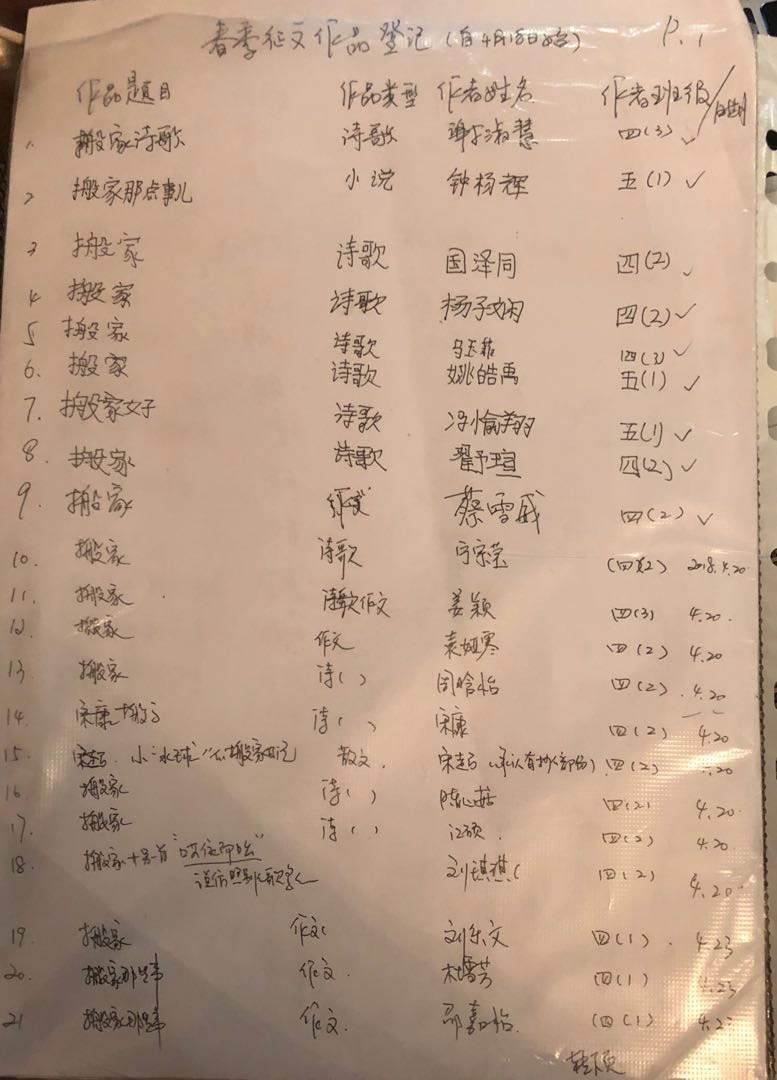 春季征文作品登记（自4月18日始） P.1
作品题目 作品类型 作者姓名 作者班级/日期
1. 搬家诗歌 诗歌 谢淑慧 四(3) ✓
2 搬家那点事儿 小说 钟杨辉 五(1) ✓
3 搬家 诗歌 国泽同 四(2) ✓
4 搬家 诗歌 杨子炳 四(2) ✓
5 搬家 诗歌 四(3) ✓
6. 搬家 诗歌 姚皓禹 五(1) ✓
7. 搬家女子 诗歌 冯愉翔 五(1) ✓
8. 搬家 诗歌 翟予瑄 四(2) ✓
9. 搬家 蔡雪威 四(2) ✓
10. 搬家 诗歌 宁宗荣 (四2) 2018.4.20
11. 搬家 作文 姜颖 四(3) 4.20.
12. 搬家 作文 袁娅寒 四(2) 4.20
13. 搬家 诗( ) 周晗怡 四(2) 4.20
14. 诗( ) 宋康 四(2) 4.20
15. 小"水球" 搬家日记 散文. (承认有抄人部份) 四(2) 4.20
16. 搬家 诗( ) 四(2) 4.20.
17. 搬家 诗( ) 江硕. 四(2) 4.20.
18. 搬家 刘琪琪 四(2) 4.20.
19. 搬家 作文 刘东文 四(1). 4.23
20. 搬家那些事 作文. 杜雪芳 四(1) 4.23
21 搬家那些事 作文. 邵嘉怡 四(1) 4.23
转下页